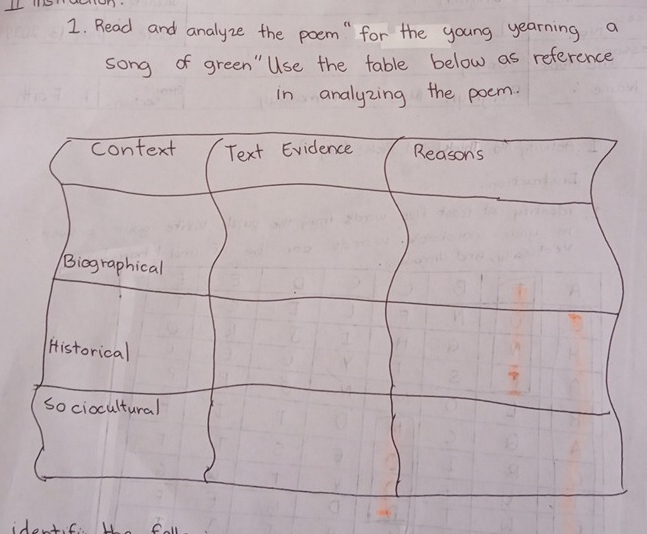 II Instruction:
1. Read and analyze the poem " for the young yearning a
song of green" Use the table below as reference
in analyzing the poem.
Context Text Evidence Reasons
Biographical
Historical
Sociocultural
identify the